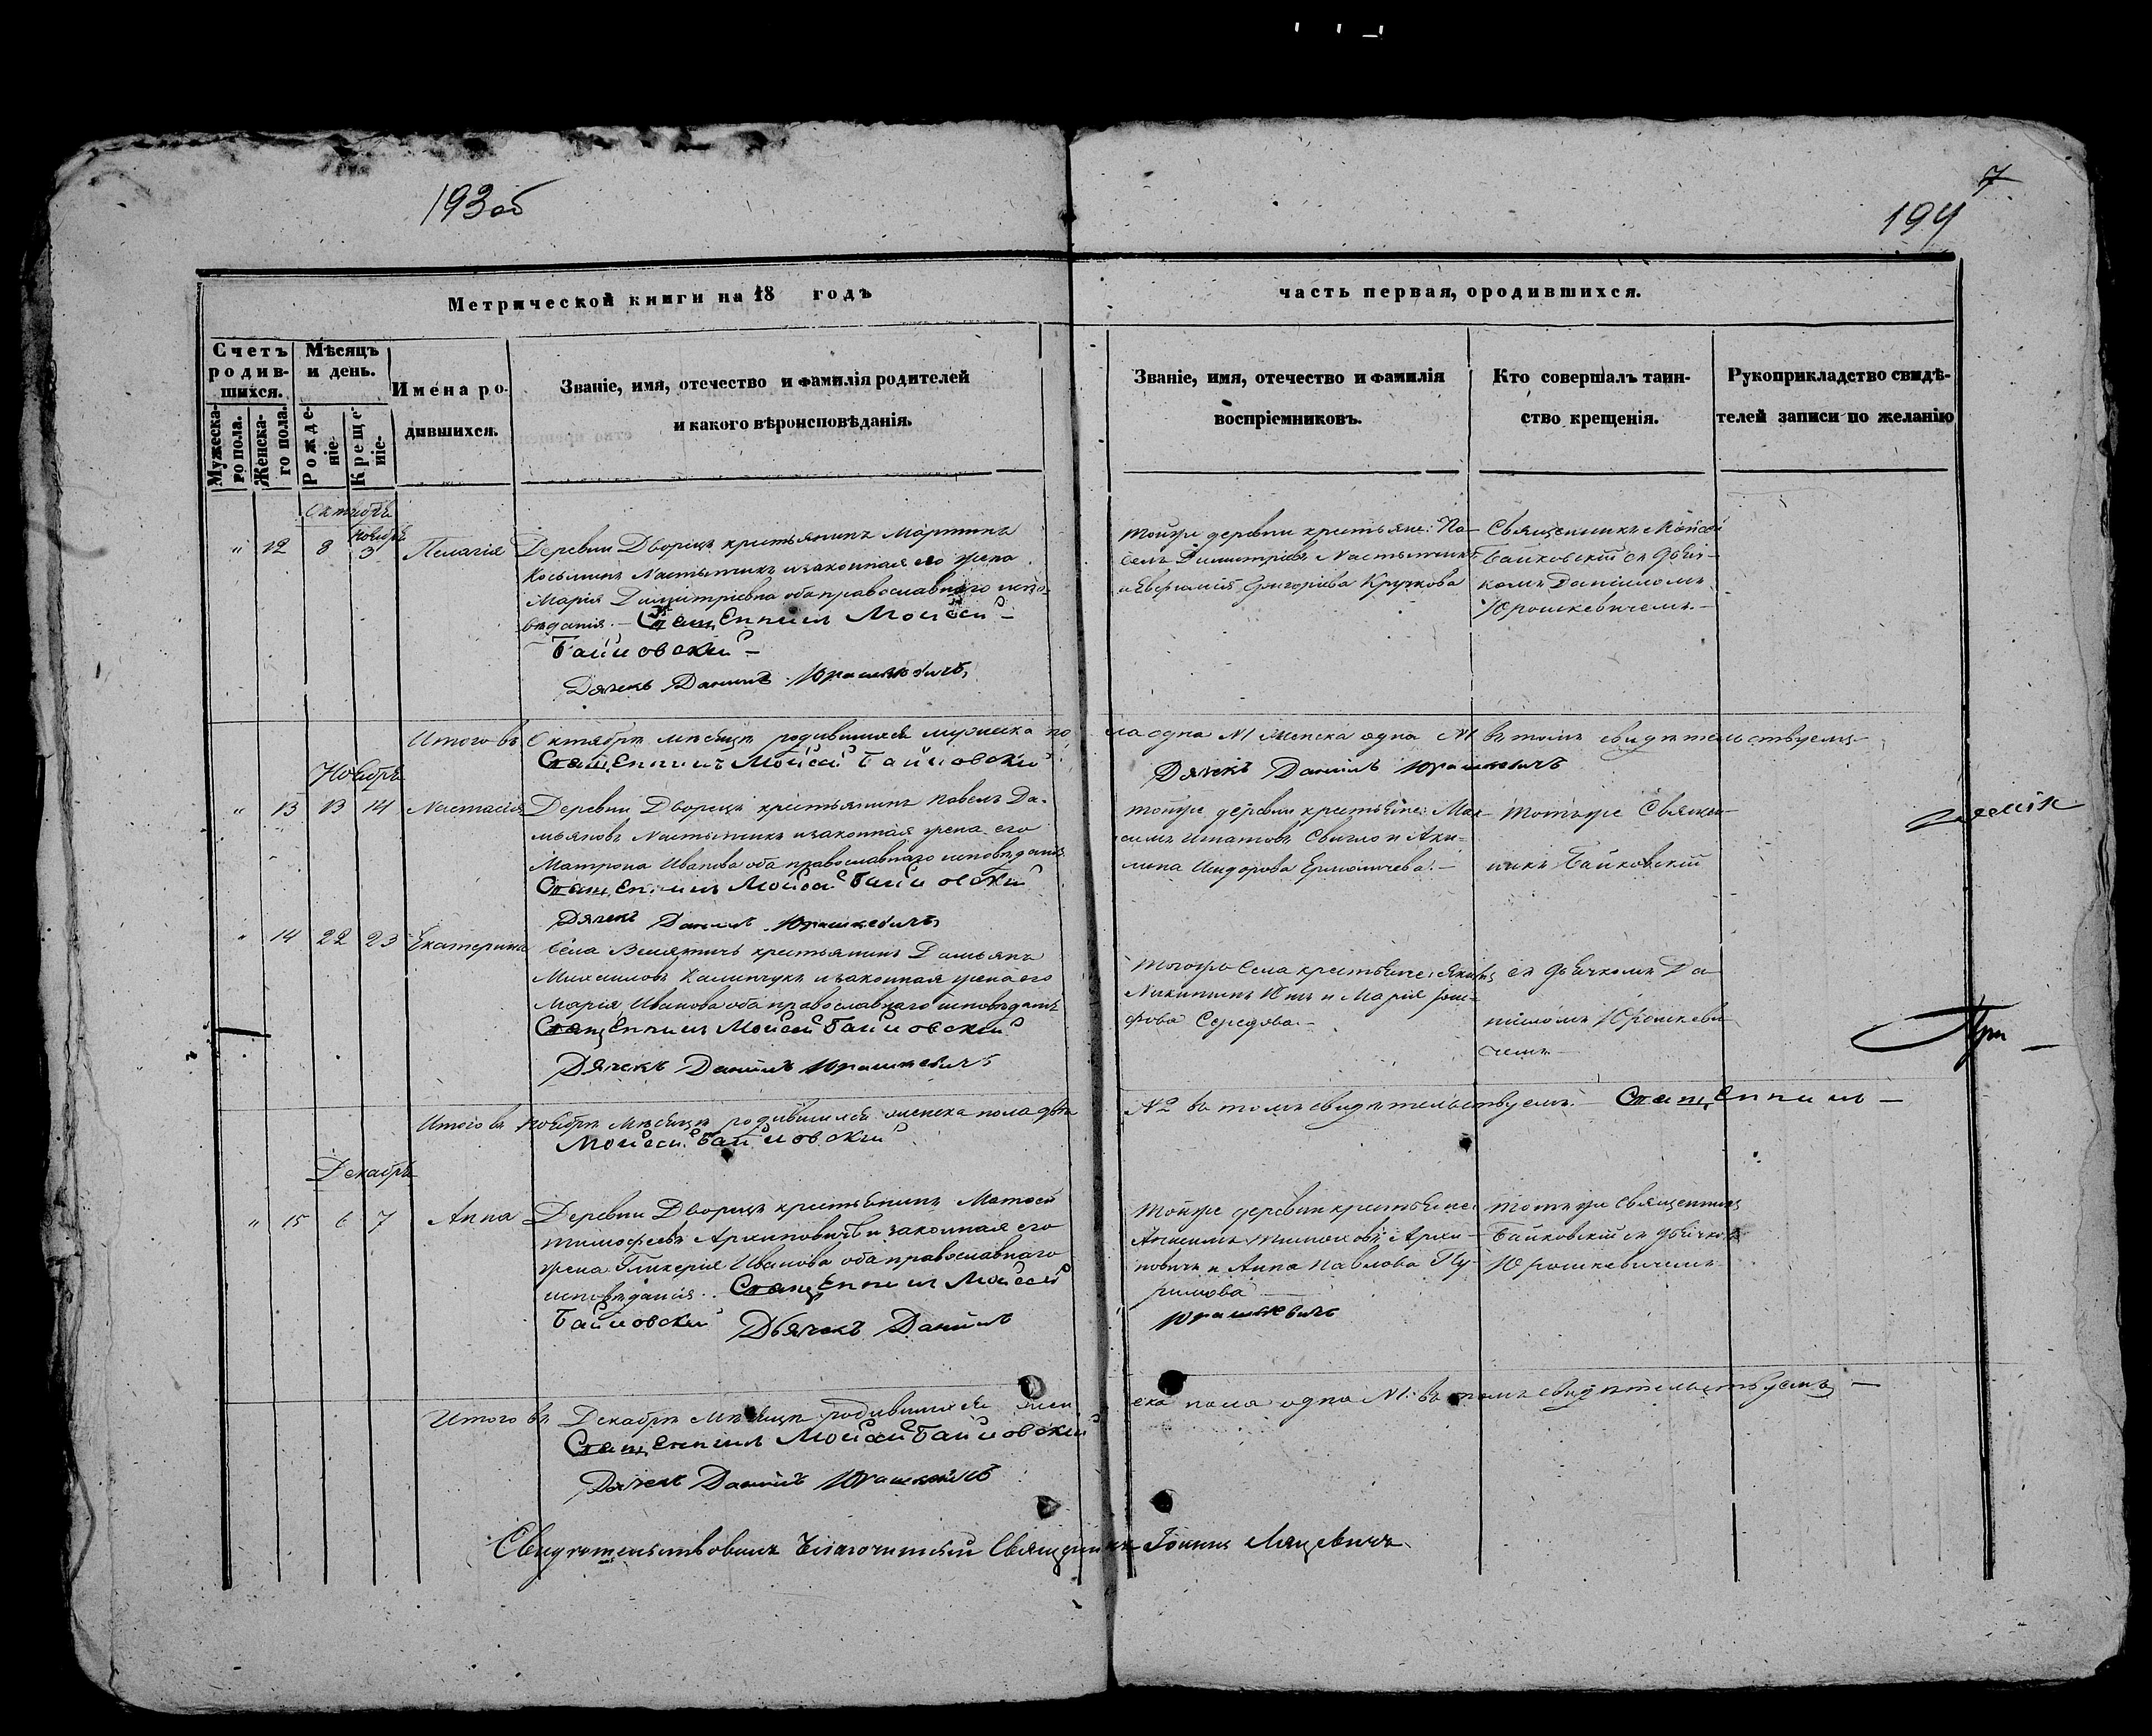 193 об
7
194
Метрической книги на 18 годъ
часть первая, ородившихся.
Счетъ родив-шихся.
Мужеска-го пола.
Женска-го пола.
Мѣсяцъ и день.
Рожде-ніе.
Креще-ніе.
Имена ро-дившихся.
Званіе, имя, отечество и фамилія родителей
и какого вѣроисповѣданія.
Званіе, имя, отечество и фамилія
воспріемниковъ.
Кто совершалъ таин-
ство крещенія.
Рукоприкладство свидѣ-
телей записи по желанію
Октябрь
Ноябрь
" 12 8 3 Пелагія
Деревни Дворецъ крестьянинъ Мартинъ
Косьминъ и законная его жена
Марія Димитріевна оба православнаго испо-
вѣданія. — Священникъ Моисей
Байковский —
Дячекъ Даниилъ Юрашкевичъ
тойже деревни крестьяне: Па-
велъ Димитріевъ
и Евфимія Григоріева Кручкова
Священникъ Моисей
Байковскій съ дьяч-
комъ Даніиломъ
Юрошкевичемъ. —
Итого въ Октябрѣ мѣсяцѣ родившихся мужеска по
ла одна №1 женска одна №1 въ томъ свидѣтельствуемъ
Священникъ Моисей Байковский
Дячекъ Даниилъ Юрашкевичъ
Ноябрь
" 13 13 14 Настасія
Деревни Дворецъ крестьянинъ Павелъ Да-
мьяновъ и законная жена его
Матрона Иванова оба православнаго исповѣданія
Священникъ Моисей Байковский
Дячекъ Даниилъ Юрашкевичъ
тойже деревни крестьяне: Мак-
симъ Игнатовъ Свигло и Аки-
лина Исидорова Ермоличева. —
Тотъже Священ-
никъ Байковскій
" 14 22 23 Екатерина
Села крестьянинъ Дамьянъ
Михаиловъ Калинчукъ и законная жена его
Марія Иванова оба православнаго исповѣданія
Священникъ Моисей Байковский
Дячекъ Даниилъ Юрашкевичъ
Тогоже Села крестьяне: Яковъ
Никитинъ и Марія Іоси-
фова Середова. —
съ дьячкомъ Да
ніиломъ Юрошкеви
чемъ —
При —
Итого въ Ноябрѣ мѣсяцѣ родившихся женска пола двѣ
№2 въ томъ свидѣтельствуемъ. Священникъ —
Моисей Байковский
Декабрь
" 15 6 7 Анна
Деревни Дворецъ крестьянинъ Матвей
Тимофеевъ Архиповичъ и законная его
жена Гликерія Иванова оба православнаго
исповѣданія. Священникъ Моисей
Байковский Дьячекъ Даниилъ
Тойже деревни крестьяне:
Архи-
повичъ и Анна Павлова
Юрашкевичъ
тотъже священникъ
Байковскій съ дьячкомъ
Юрошкевичемъ
Итого въ Декабрѣ мѣсяцѣ родившихся жен
ска пола одна №1. въ томъ свидѣтельствуемъ —
Священникъ Моисей Байковский
Дячекъ Даниилъ Юрашкевичъ
Свидѣтельствовалъ Благочинный Священникъ Іоаннъ Лящевичъ